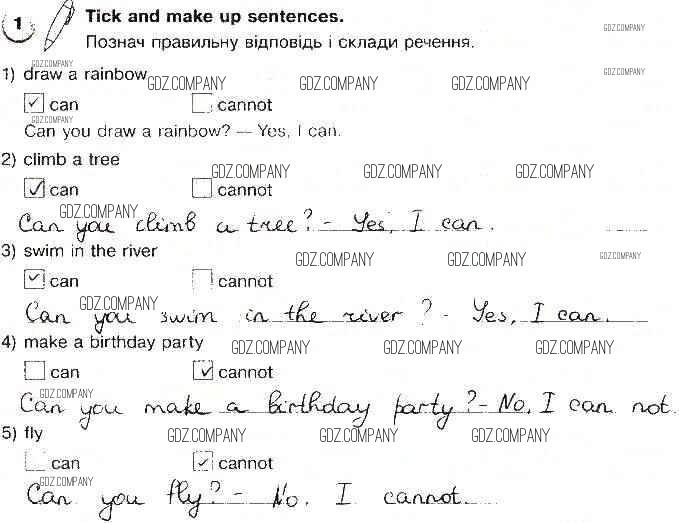 1 Tick and make up sentences.
GDZ.COMPANY
Познач правильну відповідь і склади речення.
GDZ.COMPANY
1) draw a rainbow
GDZ.COMPANY GDZ.COMPANY GDZ.COMPANY GDZ.COMPANY
✓ can cannot
GDZ.COMPANY
Can you draw a rainbow? — Yes, I can.
2) climb a tree
GDZ.COMPANY GDZ.COMPANY GDZ.COMPANY
✓ can cannot
GDZ.COMPANY
Can you climb a tree? - Yes, I can.
3) swim in the river
GDZ.COMPANY GDZ.COMPANY GDZ.COMPANY
✓ can cannot
GDZ.COMPANY
Can you swim in the river? - Yes, I can.
4) make a birthday party
GDZ.COMPANY GDZ.COMPANY GDZ.COMPANY
can ✓ cannot
GDZ.COMPANY
Can you make a birthday party? - No, I can not.
5) fly
GDZ.COMPANY GDZ.COMPANY GDZ.COMPANY
can ✓ cannot
GDZ.COMPANY
Can you fly? - No. I cannot.